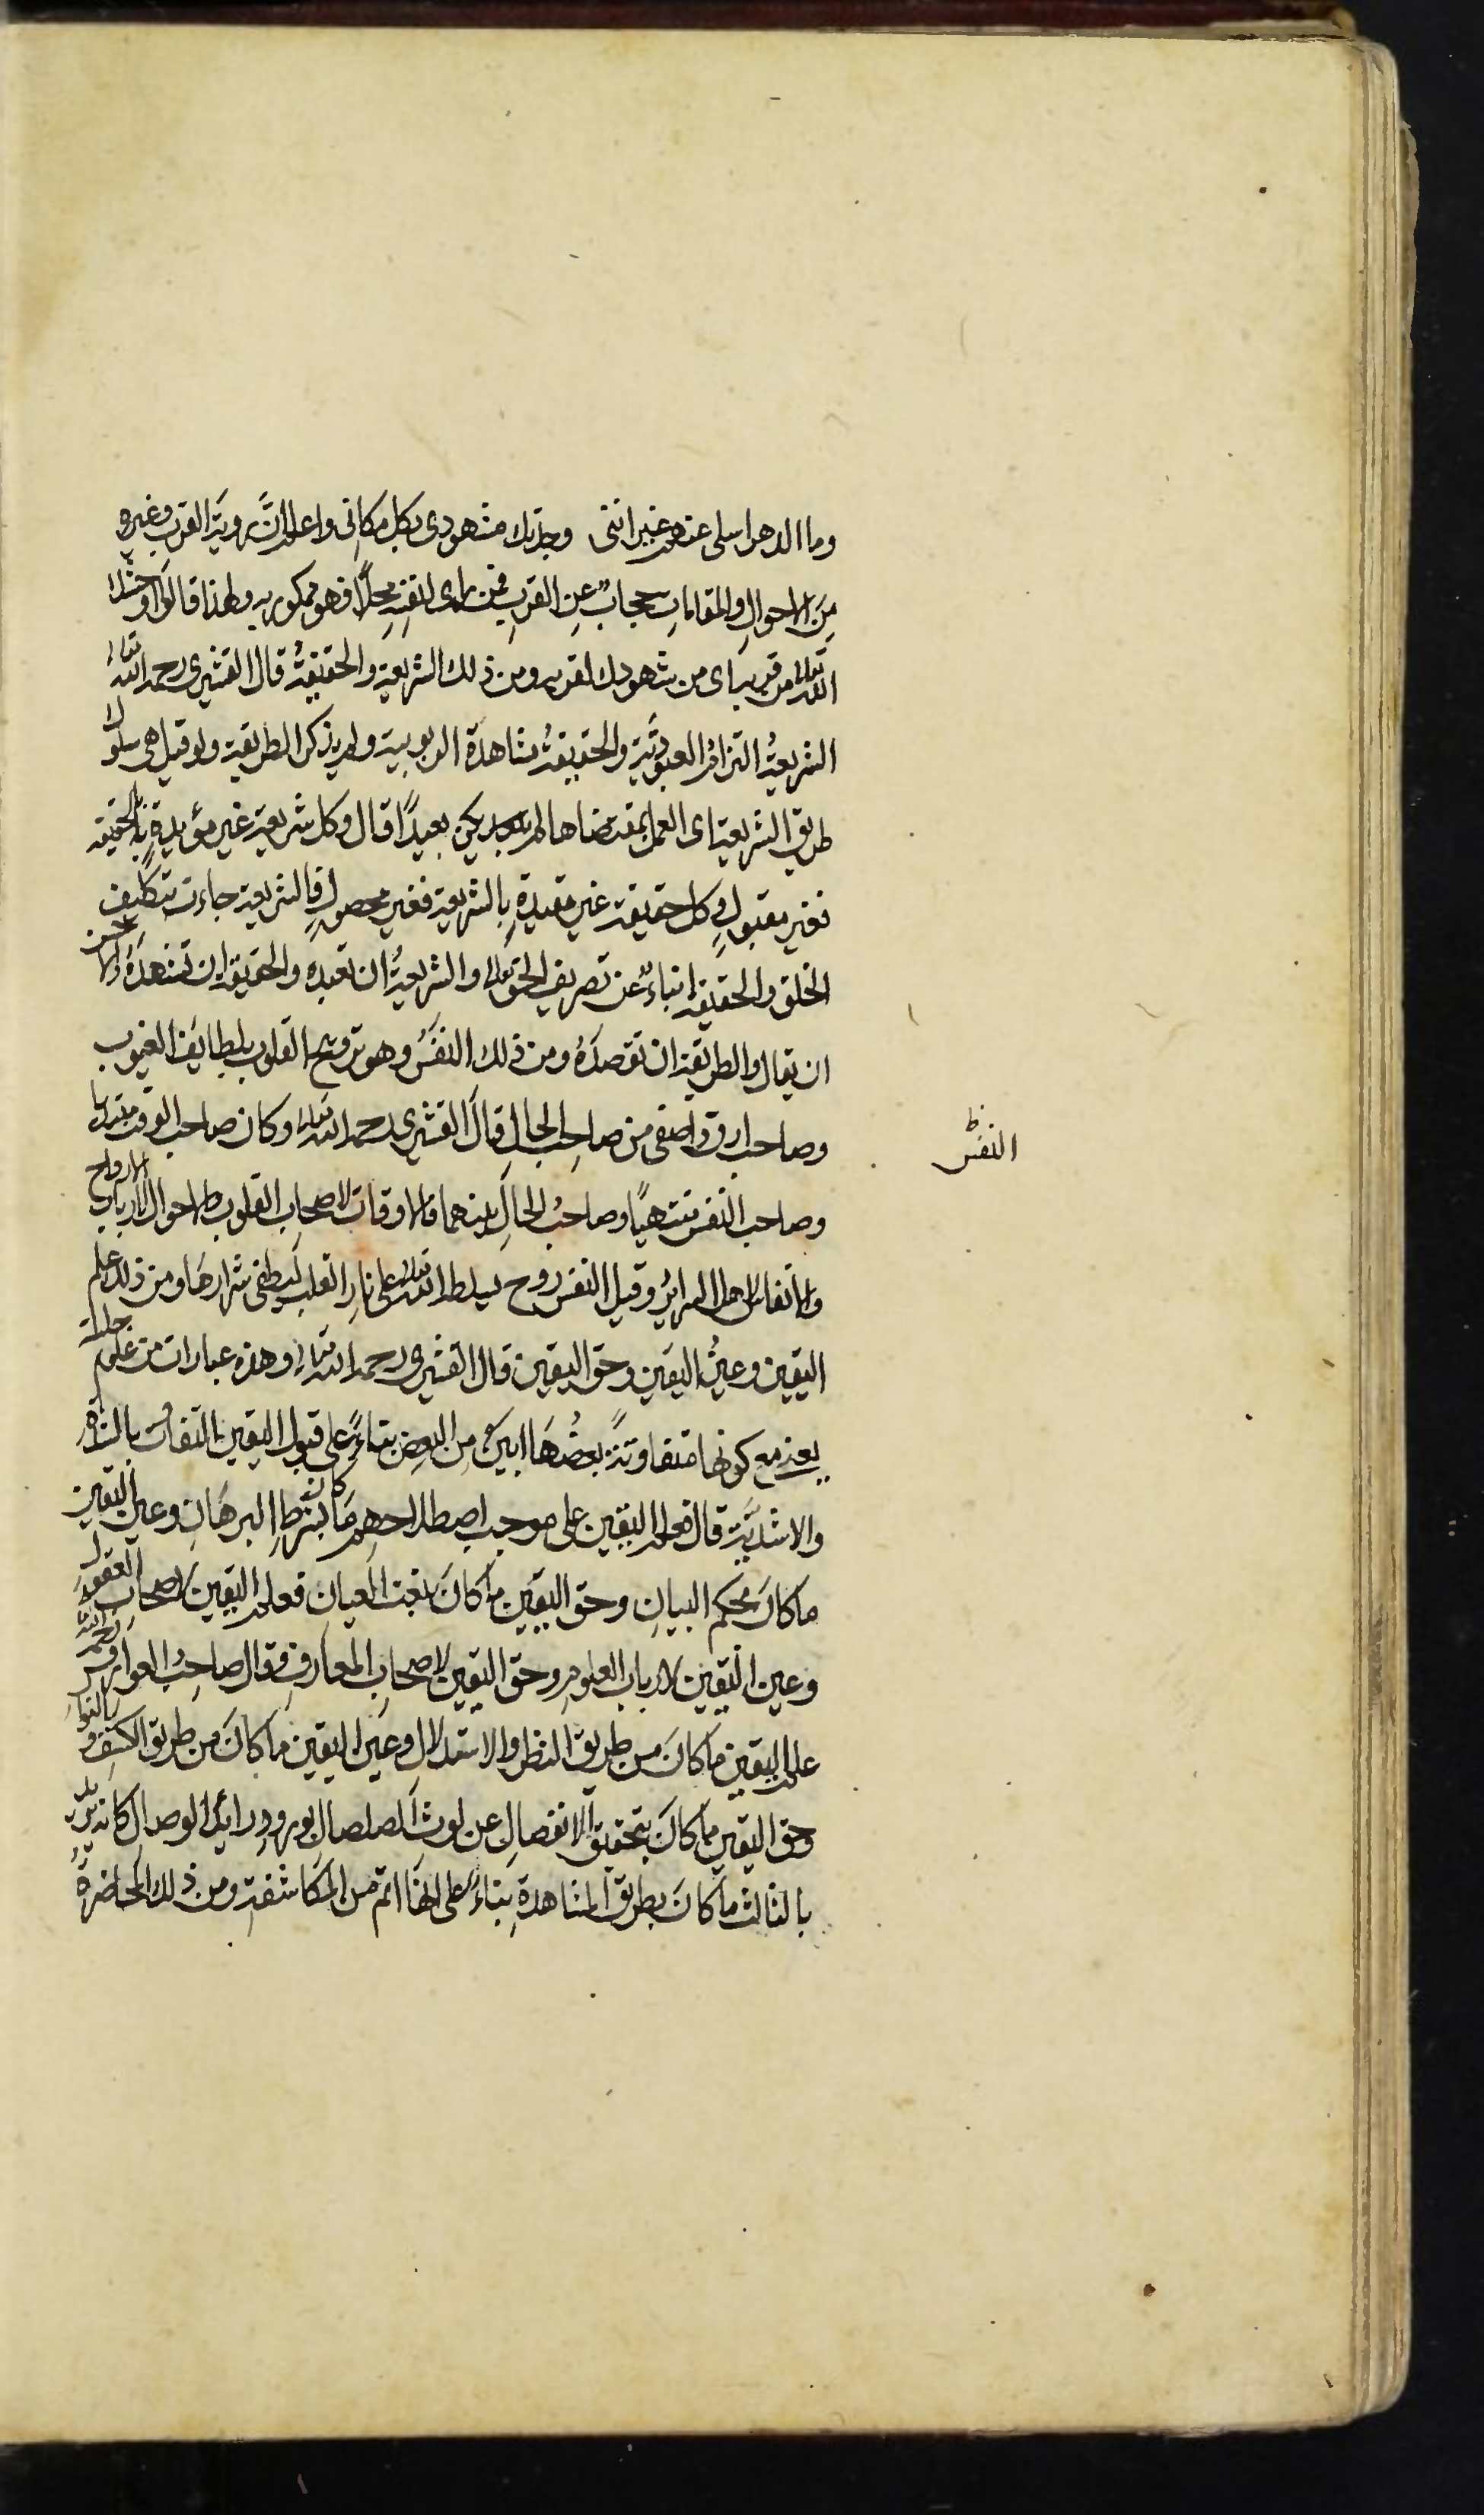 وما الدهر اسلى عنهم غير اننى وجدتك مشهودى بكل مكانى واعلم انَّ رويةَ القرب وغيره
مِنَ الاحوالِ والمقاماتِ حجابٌ عنِ القربِ فمن راى لنفسِهِ محلًا فهو ممكور به ولهذا قالوا اوحشك
الله تعالى من قربه اى من شهودك لقربه ومن ذلك الشريعة والحقيقةُ قال القشيرى رحمه الله تعالى
الشريعةُ التزامُ العبوديَّة والحقيقةُ مشاهدة الربوبية ولم يذكر الطريقة ولو قيل هى سلوك
طريق الشريعة اى العمل بمقتضاها لم يكن بعيدًا قال وكل شريعة غير مؤيدةٍ بالحقيقة
فغير مقبولٍ وكل حقيقة غير مقيدةٍ بالشريعة فغير محصولٍ فالشريعة جاءت بتكليفٍ
الخلق والحقيقة انباءٌ عن تصريف الحق تعالى والشريعةُ ان تعبده والحقيقة ان تشهدَهُ والاحسن
ان يقال والطريقة ان تقصدَهُ ومن ذلك النفَسُ وهو ترويح القلوب بلطايف الغيوب
وصاحبه ارق واصفى من صاحِب الحالِ قالَ القشيرى رحمه الله تعالى وكان صاحب الوقت مبتديا
وصاحب النفس منتهيًا وصاحبُ الحالِ بينهما فالاوقات لاصحاب القلوب والاحوال لارباب الارواح
والانفاس لاهل السرائرُ وقيل النفس روح يسلطه الله تعالى على نارِ القلب ليطفى شرارهَا ومن ذلك علم
اليقين وعينُ اليقين وحق اليقين قال القشيرى رحمه الله تعالى وهذه عبارات من علوم جلية
يعنى مع كونها متفاوتةً بعضُهَا ابين من البعض بناءً على قبول اليقين التفاوت بالشدة
والاشدّيّة قال فعلم اليقين على موجب اصطلاحهم مَا كان بشرطِ البرهَانِ وعين اليقين
ما كانَ بحكم البيانِ وحق اليقين ما كانَ بنعت العيان فعلم اليقين لاصحاب العقول
وعين اليقين لارباب العلومِ وحق اليقين لاصحابِ المعارفِ وقال صاحِبُ العوارف رحمه الله
علم اليقين ما كانَ من طريق النظر والاستدلالِ وعين اليقين ما كانَ من طريق الكشف والنوال
وحق اليقين ما كانَ بتحقيق الانفصالِ عن لوث الصلصالِ بورود رائد الوصال كانه يريد
بالثالث ما كانَ بطريق المشاهدةِ بناءً على انها اتم من المكاشفة ومن ذلك المحاضرة
النفَس